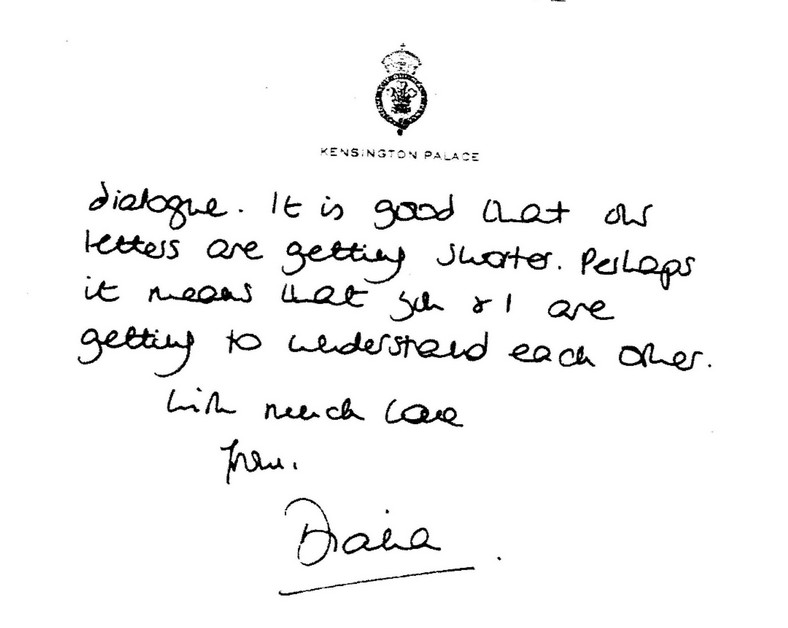 KENSINGTON PALACE
dialogue. It is good that our
letters are getting shorter. Perhaps
it means that you & I are
getting to understand each other.
With much love
from.
Diana.